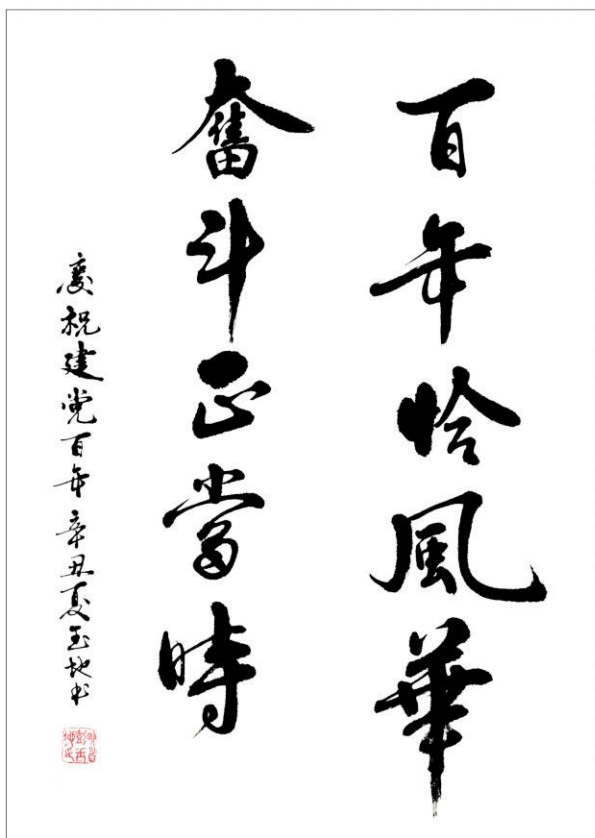 百年恰風華
奮斗正當時
慶祝建党百年 辛丑夏玉地书